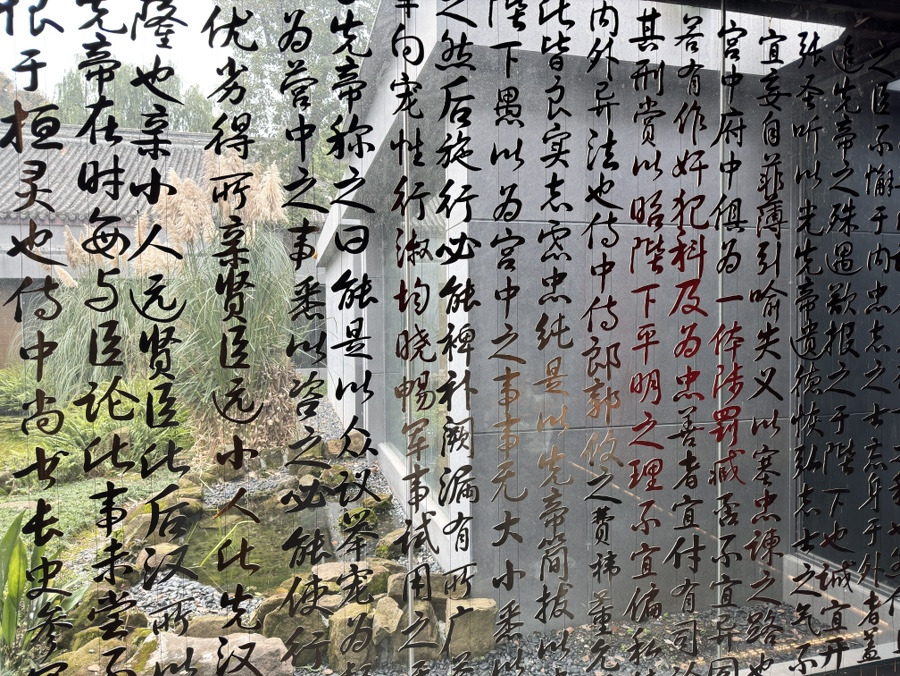 之臣不懈于内忠志之士忘身于外者盖
追先帝之殊遇欲报之于陛下也诚宜开
张圣听以光先帝遗德恢弘志士之气不
宜妄自菲薄引喻失义以塞忠谏之路也
宫中府中俱为一体陟罚臧否不宜异同
若有作奸犯科及为忠善者宜付有司论
其刑赏以昭陛下平明之理不宜偏私
内外异法也侍中侍郎郭攸之费祎董允
此皆良实志虑忠纯是以先帝简拔以
陛下愚以为宫中之事事无大小悉以
之然后施行必能裨补阙漏有所广益
向宠性行淑均晓畅军事试用之
先帝称之曰能是以众议举宠为
为营中之事悉以咨之必能使行
优劣得所亲贤臣远小人此先汉
隆也亲小人远贤臣此后汉所以
先帝在时每与臣论此事未尝不
恨于桓灵也侍中尚书长史参军